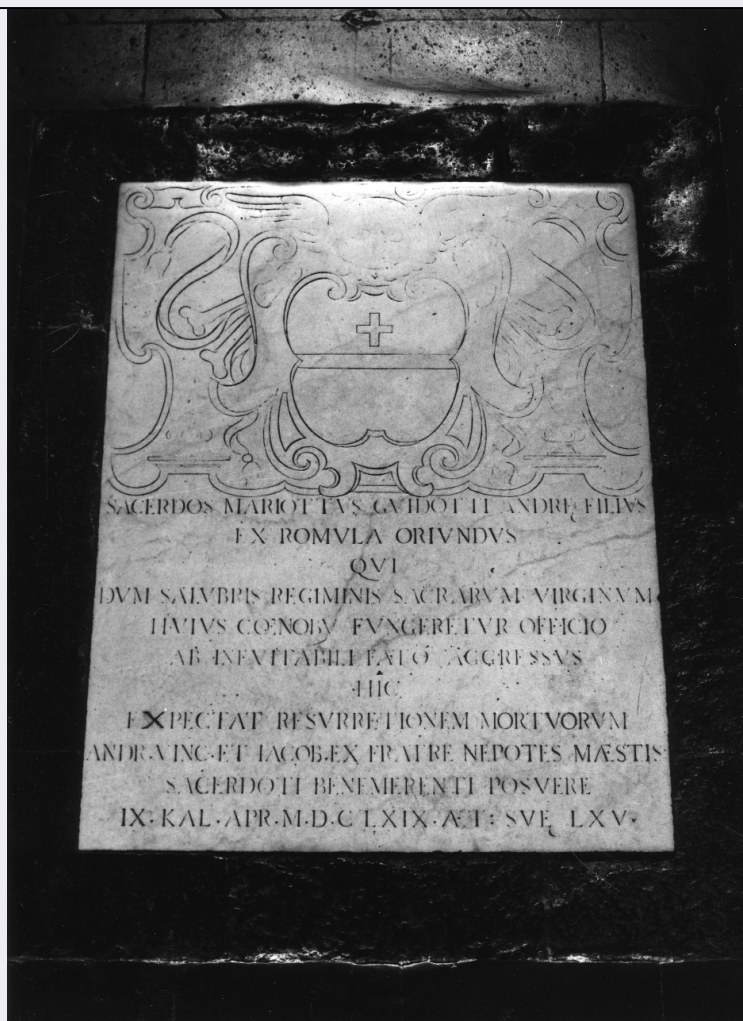 SACERDOS MARIOTTVS GVIDOTTI ANDRĘ FILIVS
EX ROMVLA ORIVNDVS
QVI
DVM SALVBRIS REGIMINIS SACRARVM VIRGINVM
HVIVS COENOBY FVNGERETVR OFFICIO
AB INEVITABILI FATO AGGRESSVS
HIC
EXPECTAT RESVRRETIONEM MORTVORVM
ANDR·VINC·ET IACOB·EX FRATRE NEPOTES MÆSTIS
SACERDOTI BENEMERENTI POSVERE
IX·KAL·APR·M·D·C LXIX·ÆT: SVĘ LXV·